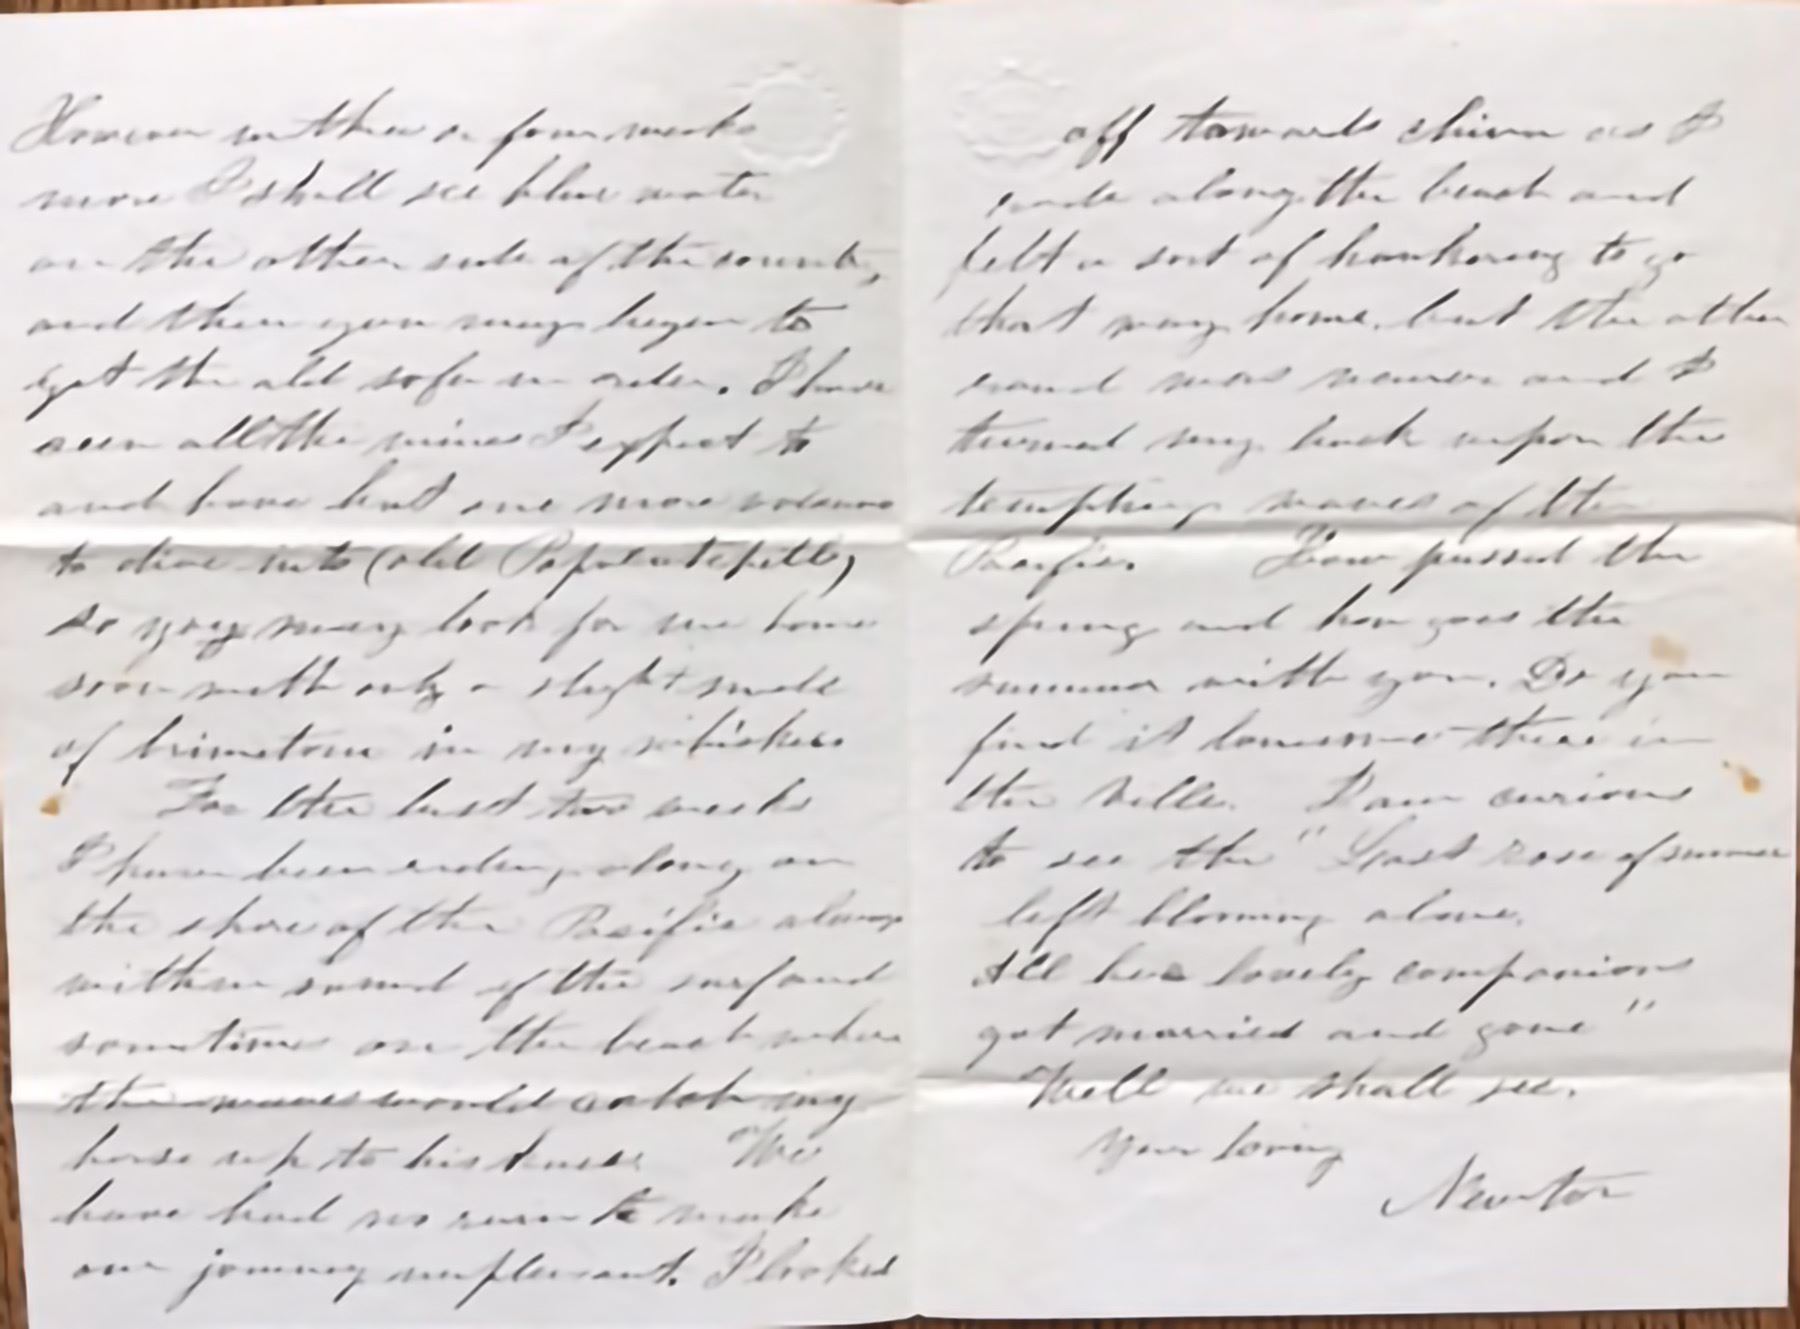 However in three or four weeks
more I shall see blue water
on the other side of the country,
and then you may begin to
get the old sofa in order. I have
seen all the mines I expect to
and have but one more volcano
to dive into (old Popocatepetl)
so you may look for me home
soon with only a slight smell
of brimstone in my whiskers
For the last two weeks
I have been riding along on
the shore of the Pacific always
within sound of the surf and
sometimes on the beach where
the waves would catch my
horse up to his knees. We
have had no rain to make
our journey unpleasant. I looked
off towards china as I
rode along the beach and
felt a sort of hankering to go
that way home, but the other
road was nearer and I
turned my back upon the
tempting waves of the
Pacific. How passed the
spring and how goes the
summer with you. Do you
find it lonesome there in
the hills. I am curious
to see the "Last rose of summer
left blooming alone.
All her lovely companions
got married and gone"
Well we shall see.
Your loving
Newton